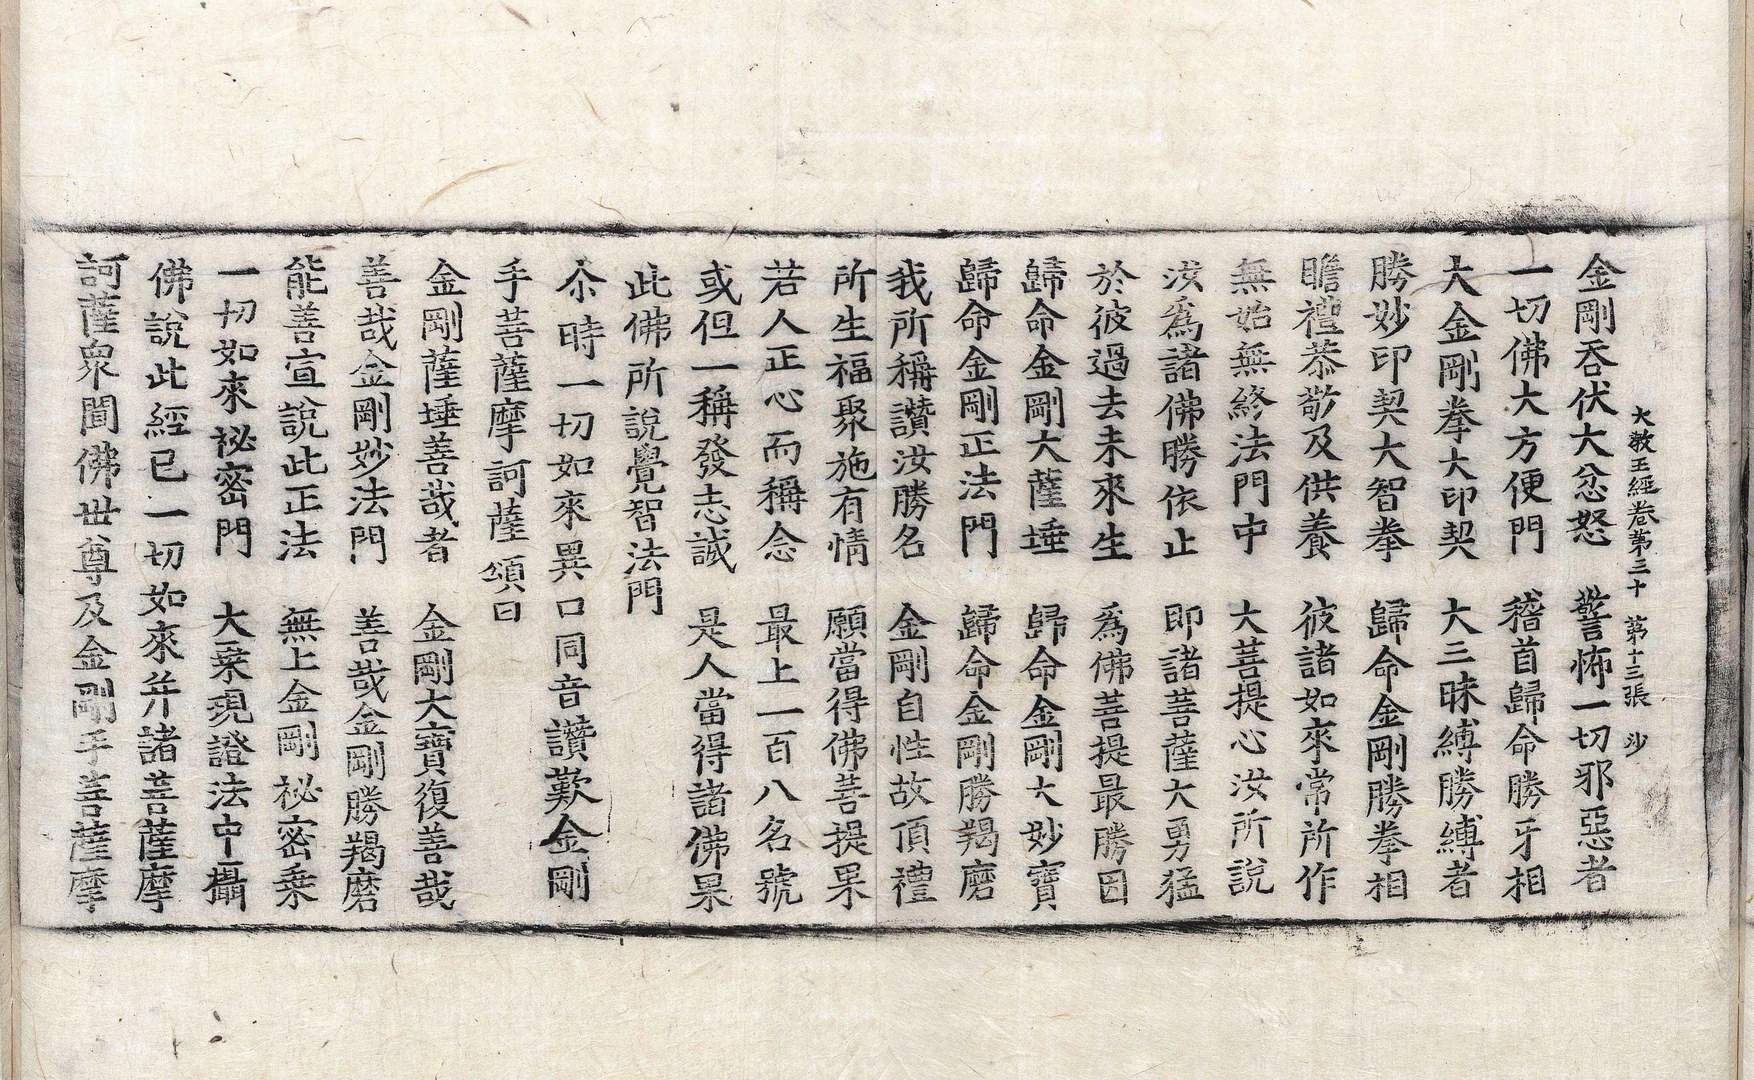 大教王經卷第三十 第十三張 沙
金剛吞伏大忿怒 警怖一切邪惡者
一切佛大方便門 稽首歸命勝牙相
大金剛拳大印契 大三昧縛勝縛者
勝妙印契大智拳 歸命金剛勝拳相
瞻禮恭敬及供養 彼諸如來常所作
無始無終法門中 大菩提心汝所說
汝爲諸佛勝依止 即諸菩薩大勇猛
於彼過去未來生 爲佛菩提最勝因
歸命金剛大薩埵 歸命金剛大妙寶
歸命金剛正法門 歸命金剛勝羯磨
我所稱讚汝勝名 金剛自性故頂禮
所生福聚施有情 願當得佛菩提果
若人正心而稱念 最上一百八名號
或但一稱發志誠 是人當得諸佛果
此佛所說覺智法門
尒時一切如來異口同音讚歎金剛
手菩薩摩訶薩頌曰
金剛薩埵善哉者 金剛大寶復善哉
善哉金剛妙法門 善哉金剛勝羯磨
能善宣說此正法 無上金剛祕密乘
一切如來祕密門 大乘現證法中攝
佛說此經已一切如來并諸菩薩摩
訶薩衆聞佛世尊及金剛手菩薩摩